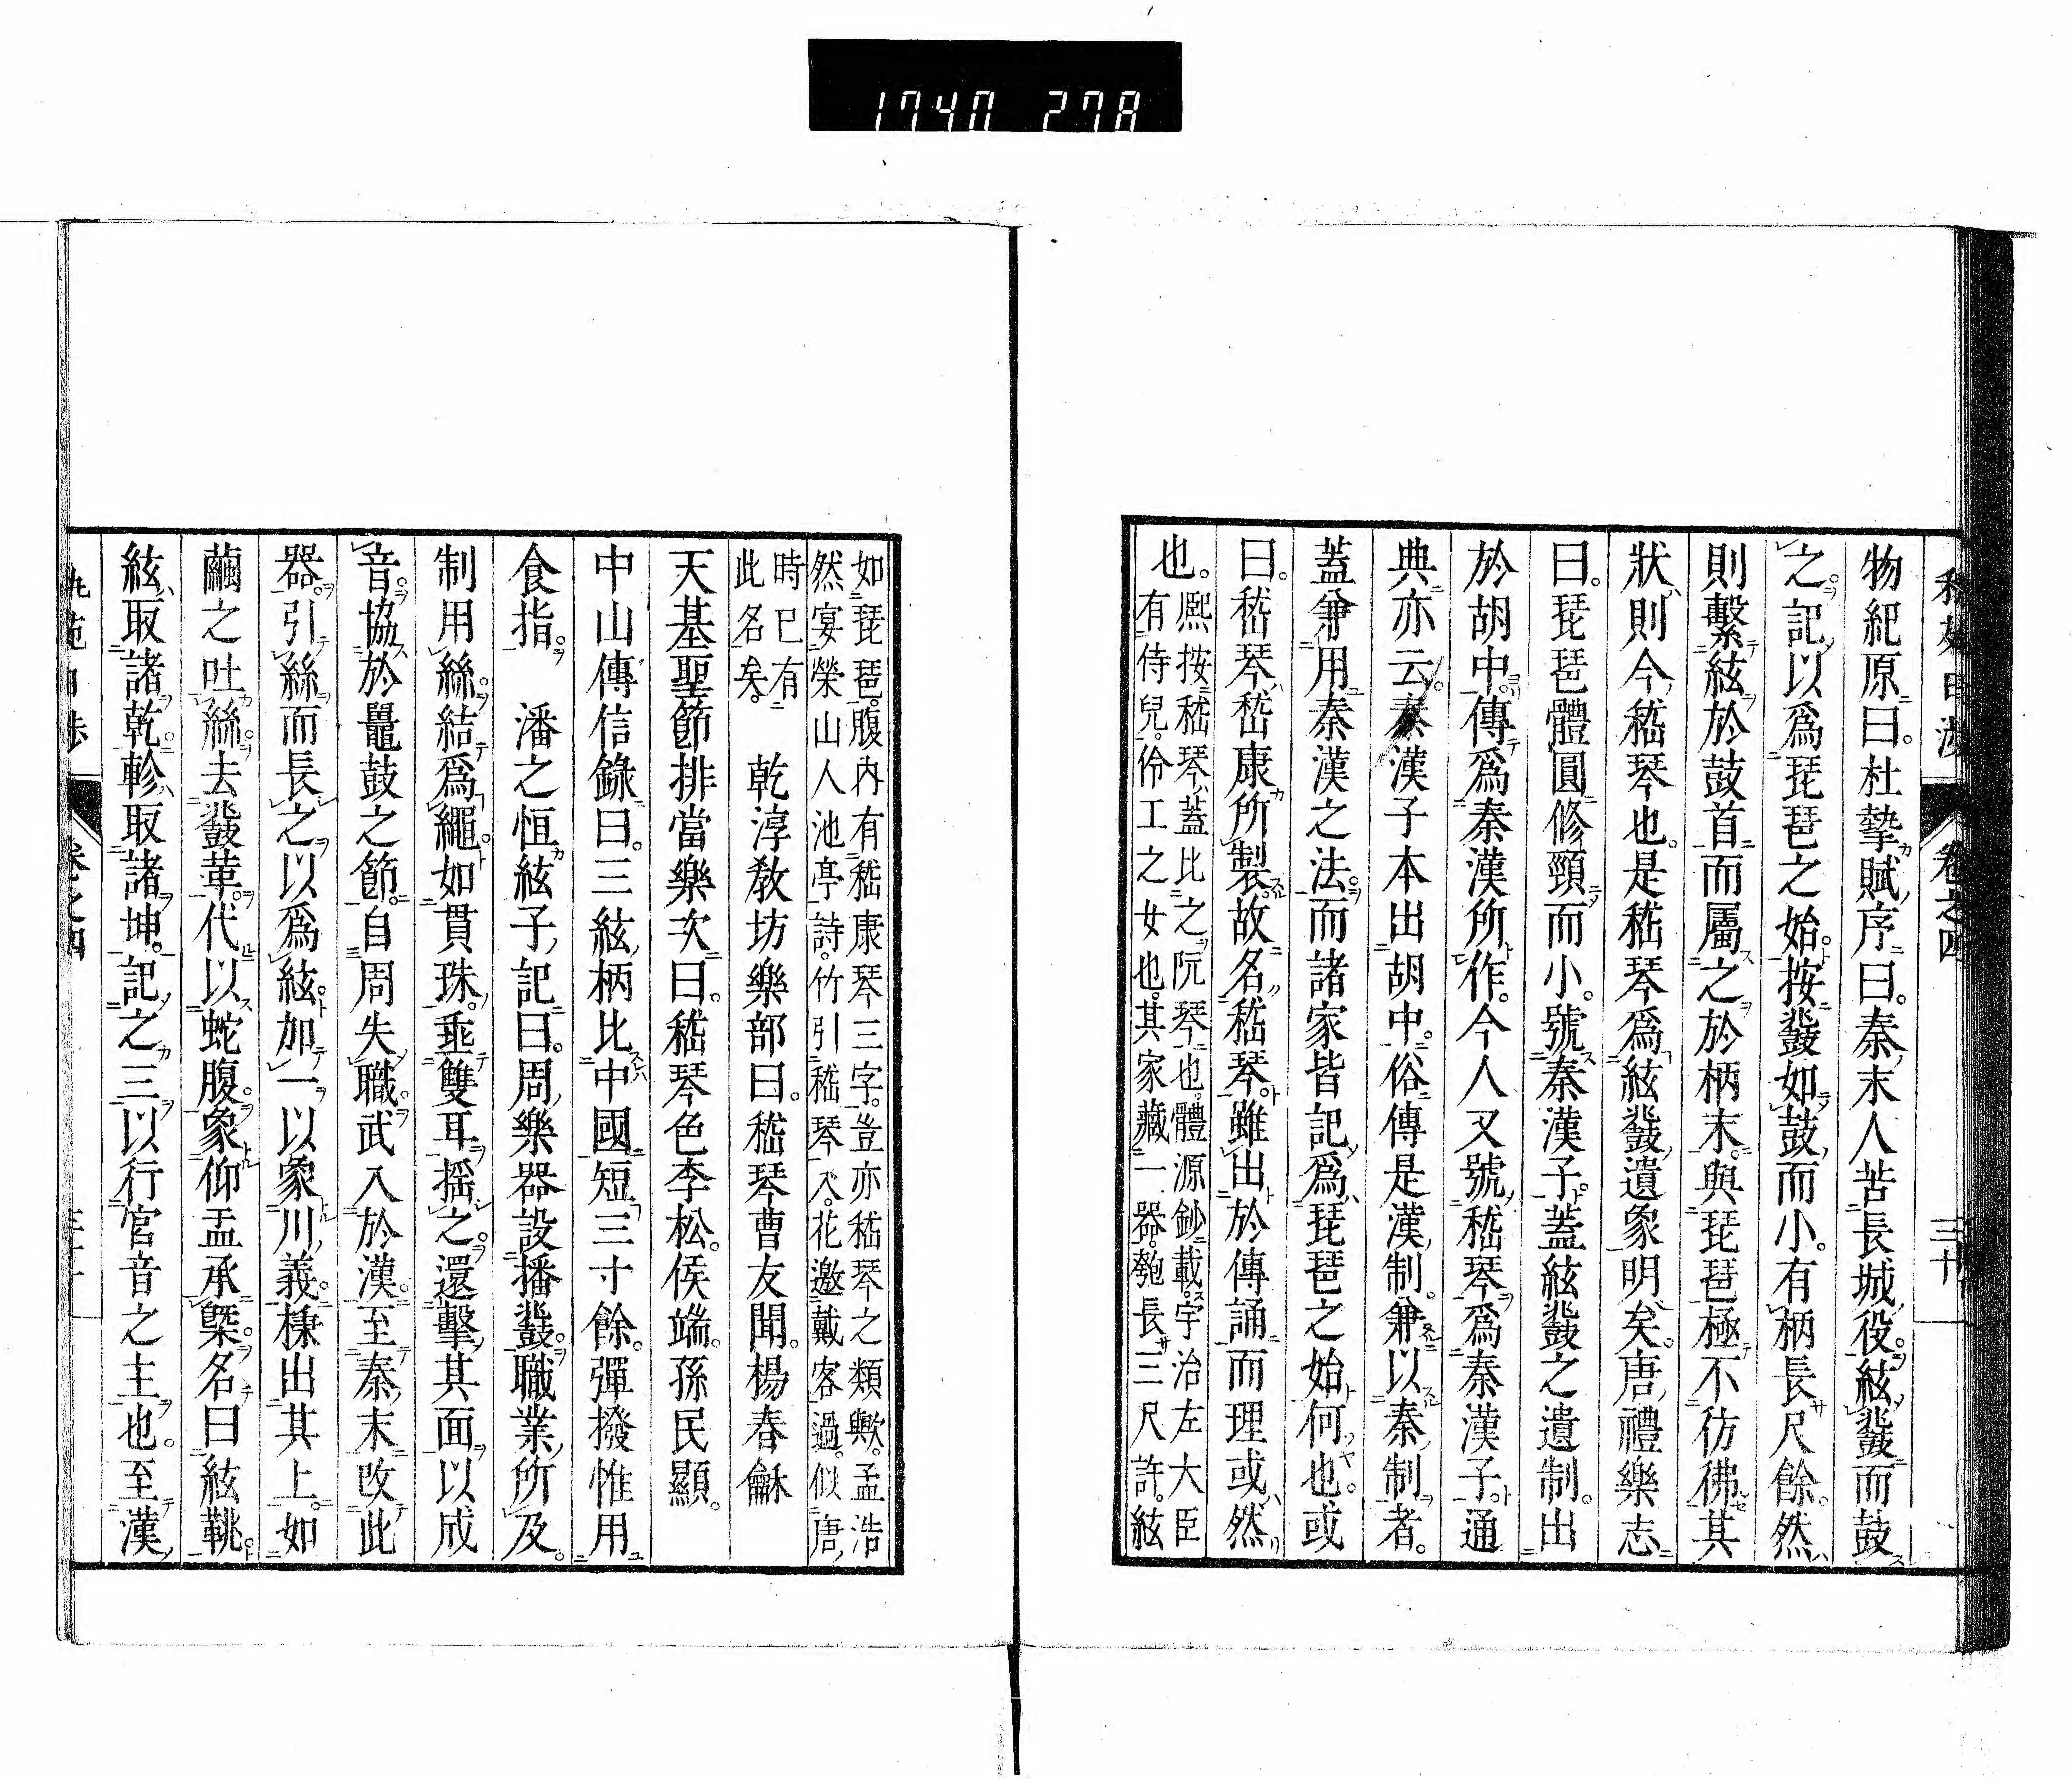 1740 278
卷之四
三十
物紀原曰。杜摯賦序曰。秦末人苦長城役。絃鼗而鼓
之。記以爲琵琶之始。按鼗如鼓而小。有柄長尺餘。然
則繫絃於鼓首而屬之於柄末。與琵琶極不彷彿。其
狀則今嵇琴也。是嵇琴爲絃鼗遺象明矣。唐禮樂志
曰。琵琶體圓修頸而小。號秦漢子。蓋絃鼗之遺制。出
於胡中。傳爲秦漢所作。今人又號嵇琴爲秦漢子。通
典亦云。秦漢子本出胡中。俗傳是漢制。兼以秦制者。
蓋兼用秦漢之法。而諸家皆記爲琵琶之始何也。或
曰。嵇琴嵇康所製。故名嵇琴。雖出於傳誦而理或然
也。熙按嵇琴蓋比之阮琴也。體源鈔載。宇治左大臣
有侍兒。伶工之女也。其家藏一器。匏長三尺許。絃
如琵琶。腹内有嵇康琴三字。豈亦嵇琴之類歟。孟浩
然宴榮山人池亭詩。竹引嵇琴入。花邀戴客過。似唐
時已有
此名矣。
乾淳敎坊樂部曰。嵇琴曹友聞。楊春龢
天基聖節排當樂次曰。嵇琴色李松。侯端。孫民顯。
中山傳信錄曰。三絃柄比中國短三寸餘。彈撥惟用
食指。　潘之恒絃子記曰。周樂器設播鼗。職業所及。
制用絲。結爲繩。如貫珠。垂雙耳搖之。還擊其面以成
音。協於鼉鼓之節。自周失職。武入於漢。至秦末改此
器。引絲而長之以爲絃。加一以象川義。棟出其上。如
繭之吐絲。去鼗革。代以蛇腹。象仰盂承槩。名曰絃鞉。
絃取諸乾。軫取諸坤。記之三以行官音之主也。至漢
卷之四